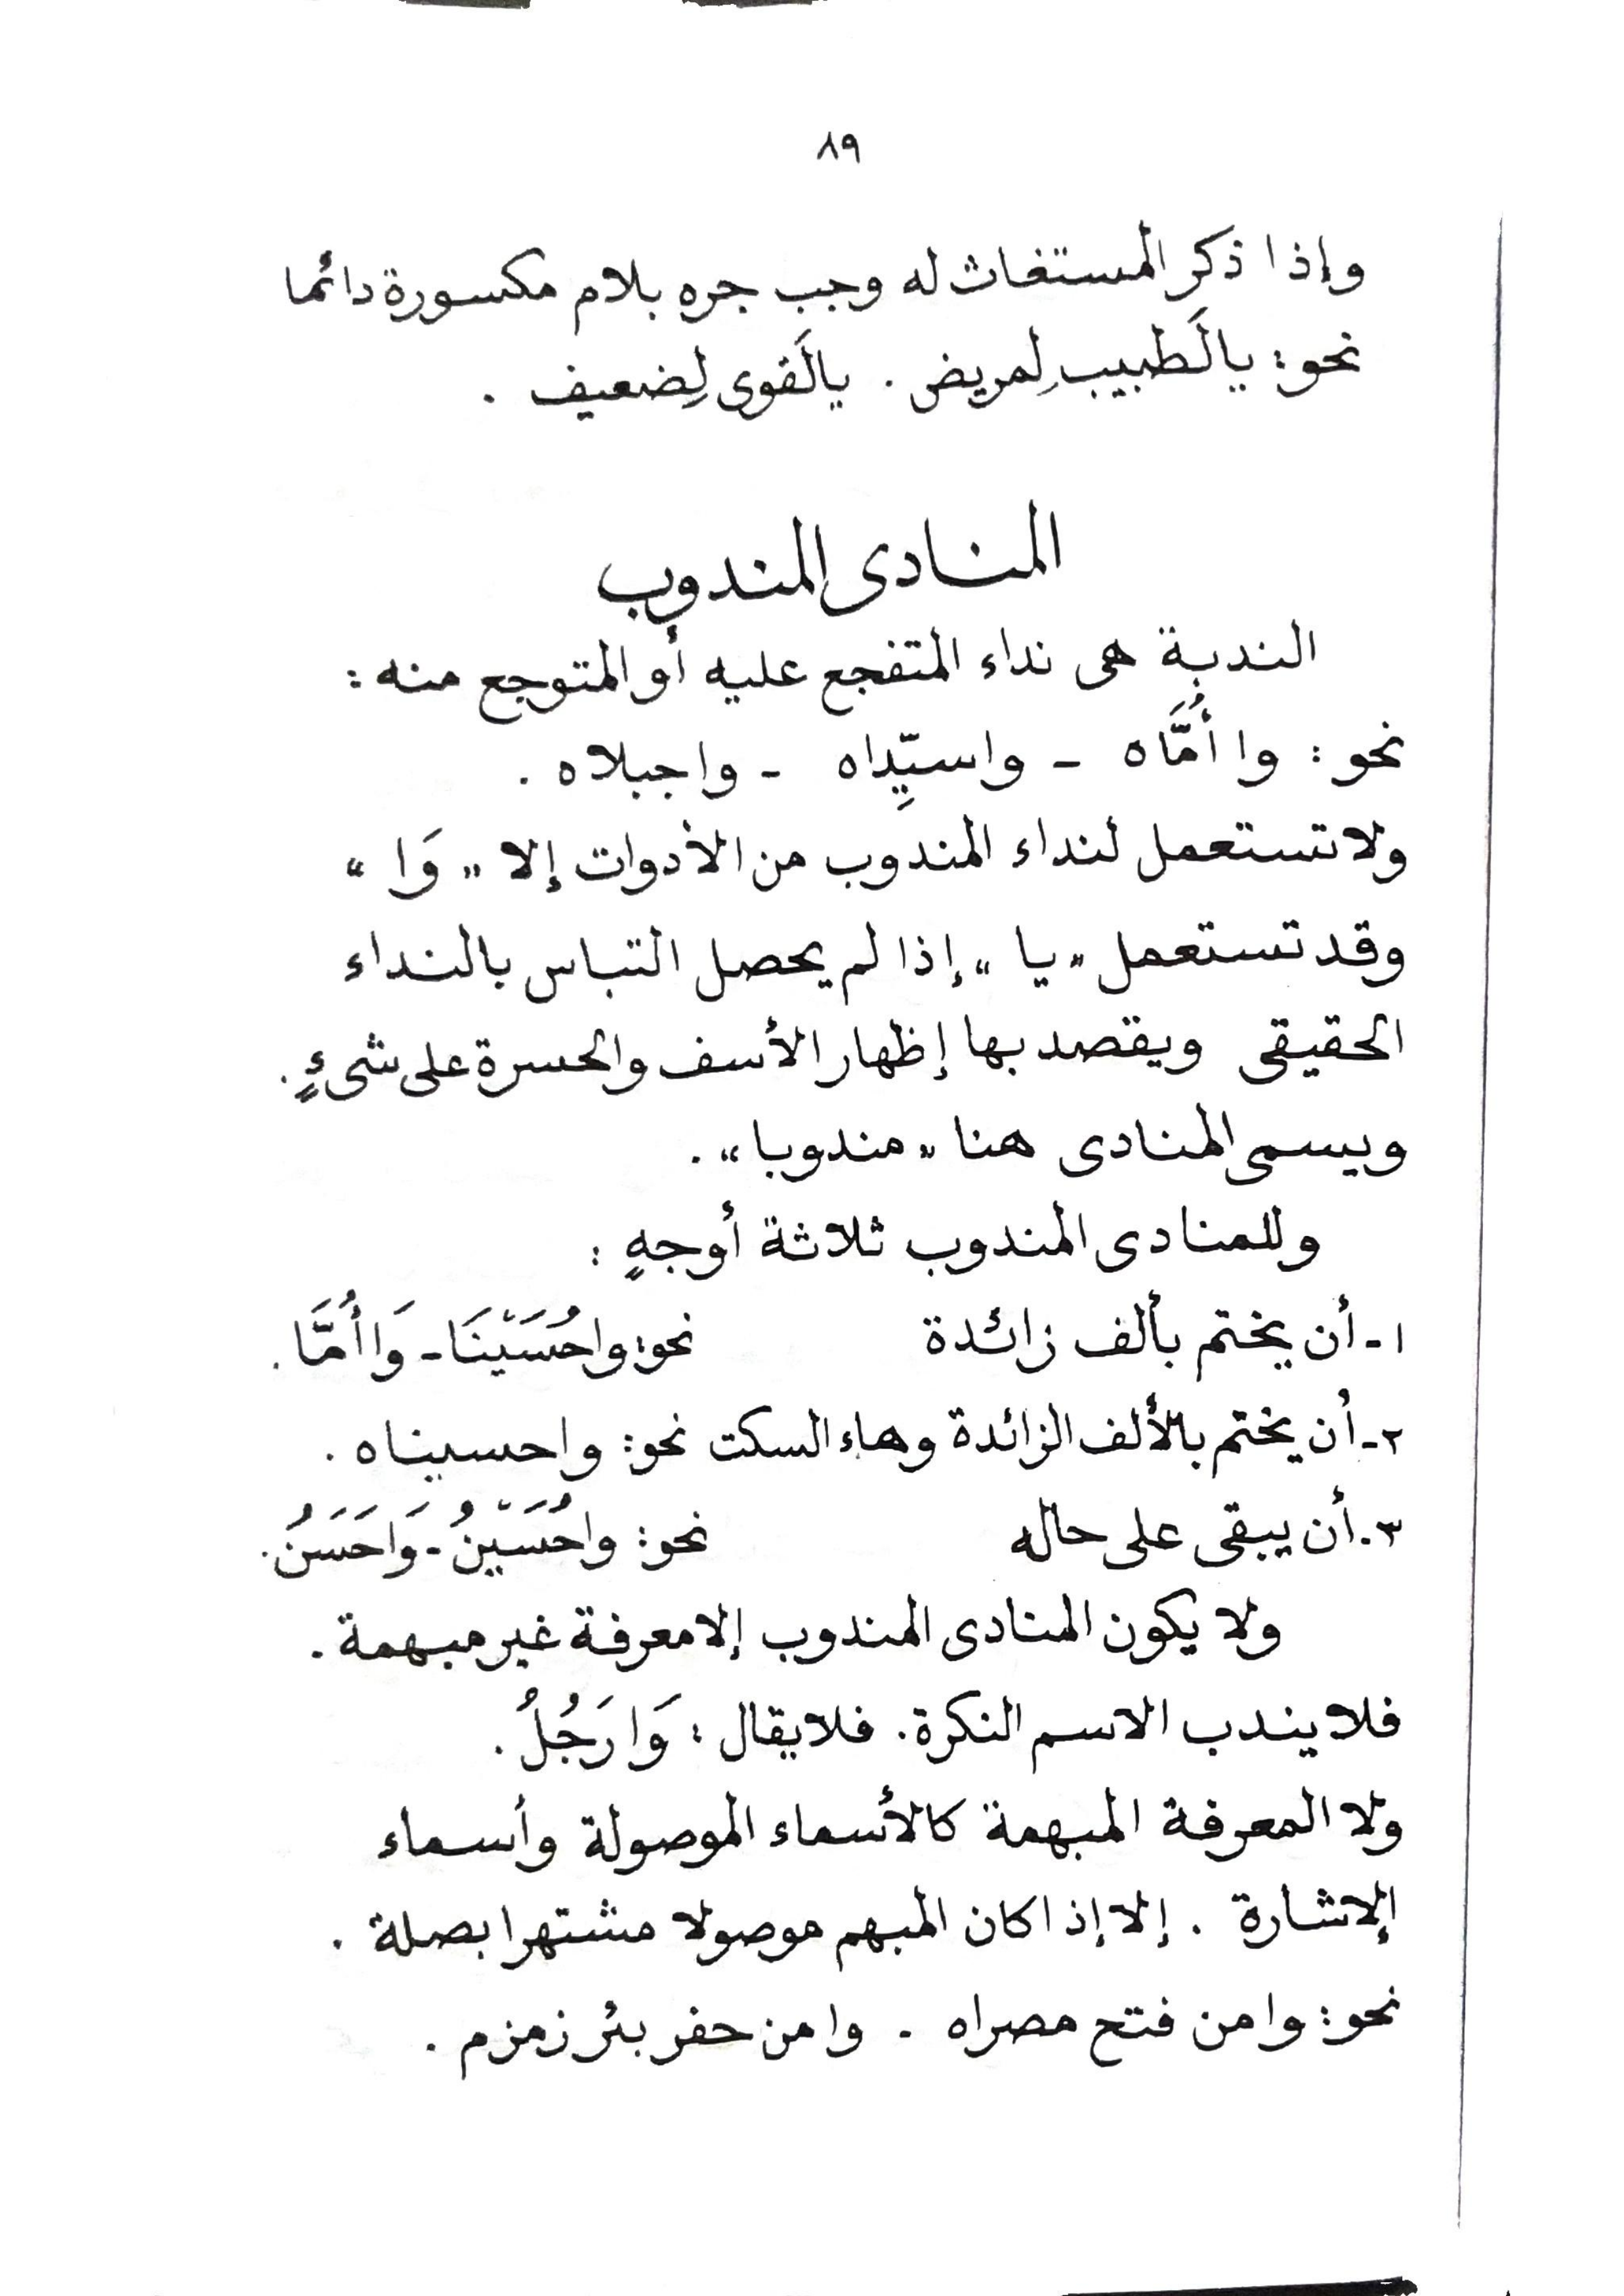 ٨٩
وإذا ذكر المستغاث له وجب جره بلام مكسورة دائما
نحو: يالَطبيب لِمريض . يالَقوى لِضعيف .
المنادى المندوب
الندبة هى نداء المتفجع عليه أو المتوجع منه :
نحو : وا أُمَّاه - واسيِّداه - واجبلاه .
ولا تستعمل لنداء المندوب من الأدوات إلا « وَا »
وقد تستعمل « يا » إذا لم يحصل التباس بالنداء
الحقيقى ويقصد بها إظهار الأسف والحسرة على شىءٍ .
ويسمى المنادى هنا « مندوبا » .
وللمنادى المندوب ثلاثة أوجهٍ :
١- أن يختم بألف زائدة نحو: واحُسَيْنَا - وَا أُمَّا .
٢- أن يختم بالألف الزائدة وهاء السكت نحو: واحسيناه .
٣. أن يبقى على حاله نحو: واحُسَيْنُ - وَاحَسَنُ .
ولا يكون المنادى المندوب إلا معرفة غير مبهمة .
فلا يندب الاسم النكرة . فلا يقال : وَا رَجُلُ .
ولا المعرفة المبهمة كالأسماء الموصولة وأسماء
الإشارة . إلا إذا كان المبهم موصولا مشتهرا بصلة .
نحو: وامن فتح مصراه . وامن حفر بئر زمزم .